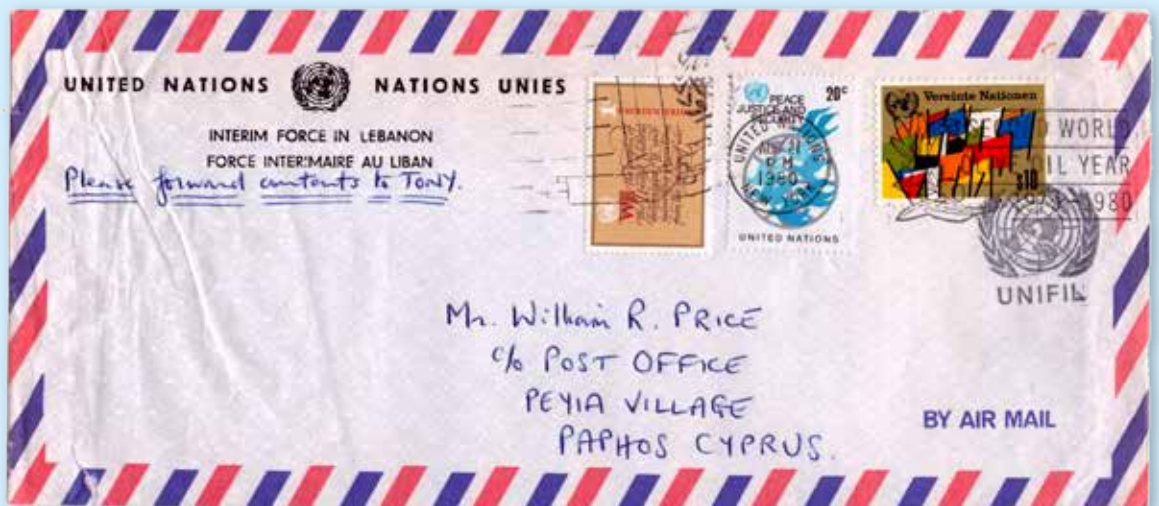 UNITED NATIONS NATIONS UNIES
INTERIM FORCE IN LEBANON
FORCE INTERIMAIRE AU LIBAN
Please forward contents to TONY.
PEACE
JUSTICE AND
SECURITY
20c
UNITED NATIONS
Vereinte Nationen
S10
UNITED NATIONS
AUG 21
PM
1980
NEW YORK
WORLD
OIL YEAR
1979-1980
UNIFIL
Mr. William R. PRICE
c/o POST OFFICE
PEYIA VILLAGE
PAPHOS CYPRUS.
BY AIR MAIL